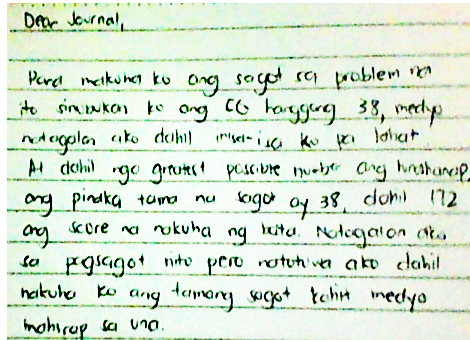 Dear Journal,
Para makuha ko ang sagot sa problem na
ito sinubukan ko ang CG hanggang 38, medyo
natagalan ako dahil inisa-isa ko pa lahat.
At dahil nga greatest possible number ang hinahanap,
ang pinaka tama na sagot ay 38, dahil 172
ang score na nakuha ng bata. Natagalan ako
sa pagsagot nito pero natutuwa ako dahil
nakuha ko ang tamang sagot kahit medyo
mahirap sa una.